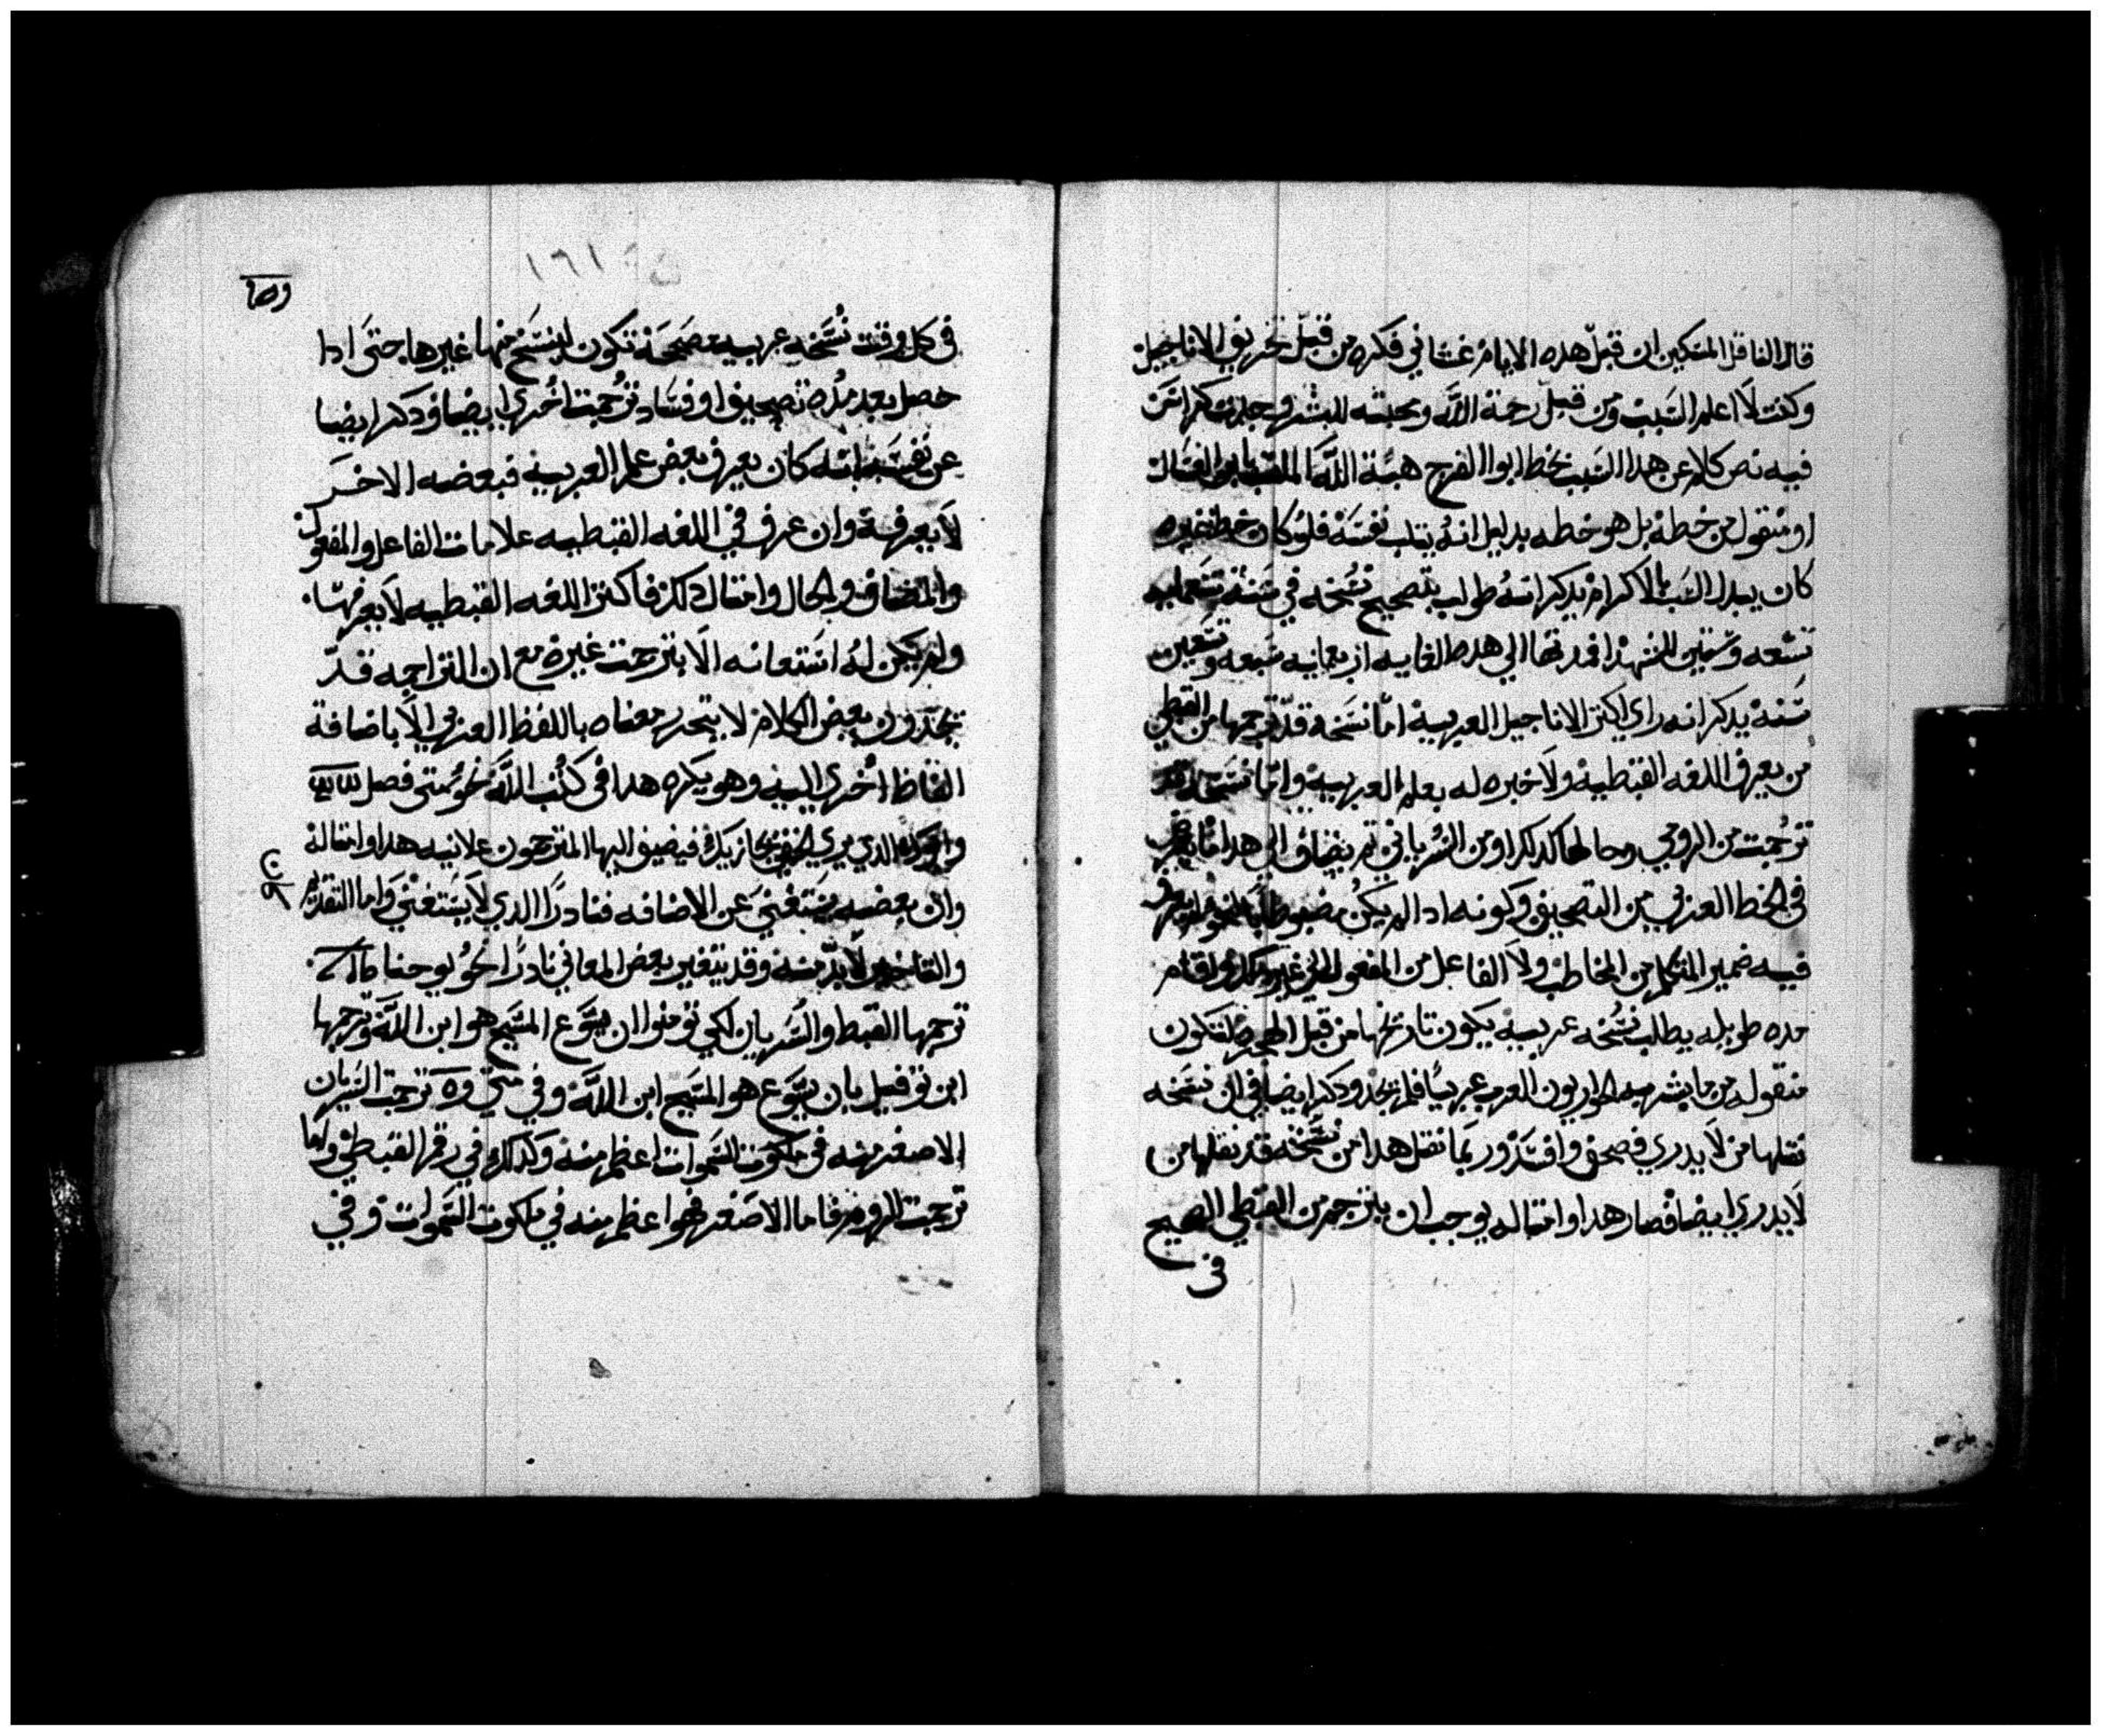 قال الناقل المسكين ان قبل هده الايام غشاني فكره من قبل تحريف الاناجيل
وكنت لا اعلم السبب ومن قبل رحمة الله ومحبته للبشر وجدت كراس
فيه نص كلام عن هدا السبب بخط ابوا الفرج هبة الله الملقب بابن العسال
او منقول من خطه بل هو خطه بدليل انه يتلب نفسه فلو كان خط غيره
كان يبدل السب بالاكرام يدكر انه طولب بتصحيح نسخه في سنة تسعمايه
تسعه وستين للشهدا فمدتها الي هده الغايه اربعمايه سبعه وتسعين
سنة يدكر انه راي اكتر الاناجيل العربية اما نسخه قد ترجمها من القبطي
من يعرف اللغه القبطية ولا خبره له بعلم العربية واما نسخه قد
ترجمت من الرومي وحالها كدلك او من السرياني تم ينضاف الي هدا ما يعرض
في الخط العربي من التصحيف وكونه ادا لم يكن مضبوطا بالنحو لم يعرف
فيه ضمير المتكلم من المخاطب ولا الفاعل من المفعول الي غير دلك واقام
مده طويله يطلب نسخه عربيه يكون تاريخها من قبل الهجره لتكون
منقوله من ما بشر به الحواريون العرب عربيا فلم يجد ودكر ايضا في ان نسخه
نقلها من لا يدري فصحف وافسد وربما نقل هدا من نسخه قد نقلها من
لا يدري ايضا فصار هدا وامتاله يوجب ان يترجم من القبطي الصحيح
في
١٦١
في كل وقت نسخه عربيه مصححة تكون لينسخ منها غيرها حتي ادا
حصل بعد مده تصحيف او فساد ترجمت اخري ايضا ودكر ايضا
عن نفسه انه كان يعرف بعض علم العربيه فبعضه الاخر
لا يعرفه وان عرف في اللغه القبطيه علامات الفاعل والمفعول
والمضاف والحال وامتال دلك فاكتر اللغه القبطيه لا يعرفها
ولم يكن له استعانه الا بترجمت غيره مع ان التراجمه قد
يجدون بعض الكلام لا يتحرر معناه باللفظ العربي الا باضافة
الفاظ اخري اليه وهو يكره هدا في كتب الله نحو متي فصل
الدي يري فيضيف اليها المترجمون علانيه هدا وامتاله
وان بعضه يستغني عن الاضافه فنادرا الدي لا يستغني واما التقديم
والتاخير لا بد منه وقد يتغير بعض المعاني نادرا نحو يوحنا
ترجمها القبط والسريان لكي تومنوا ان يسوع المسيح هو ابن الله وترجمها
ابن توفيل بان يسوع هو المسيح ابن الله وفي متي ترجمت السريان
الاصغر منه في ملكوت السموات اعظم منه وكدلك في رقم القبطي واما
ترجمت الروم فاما الاصغر فهوا اعظم منه في ملكوت السموات وفي